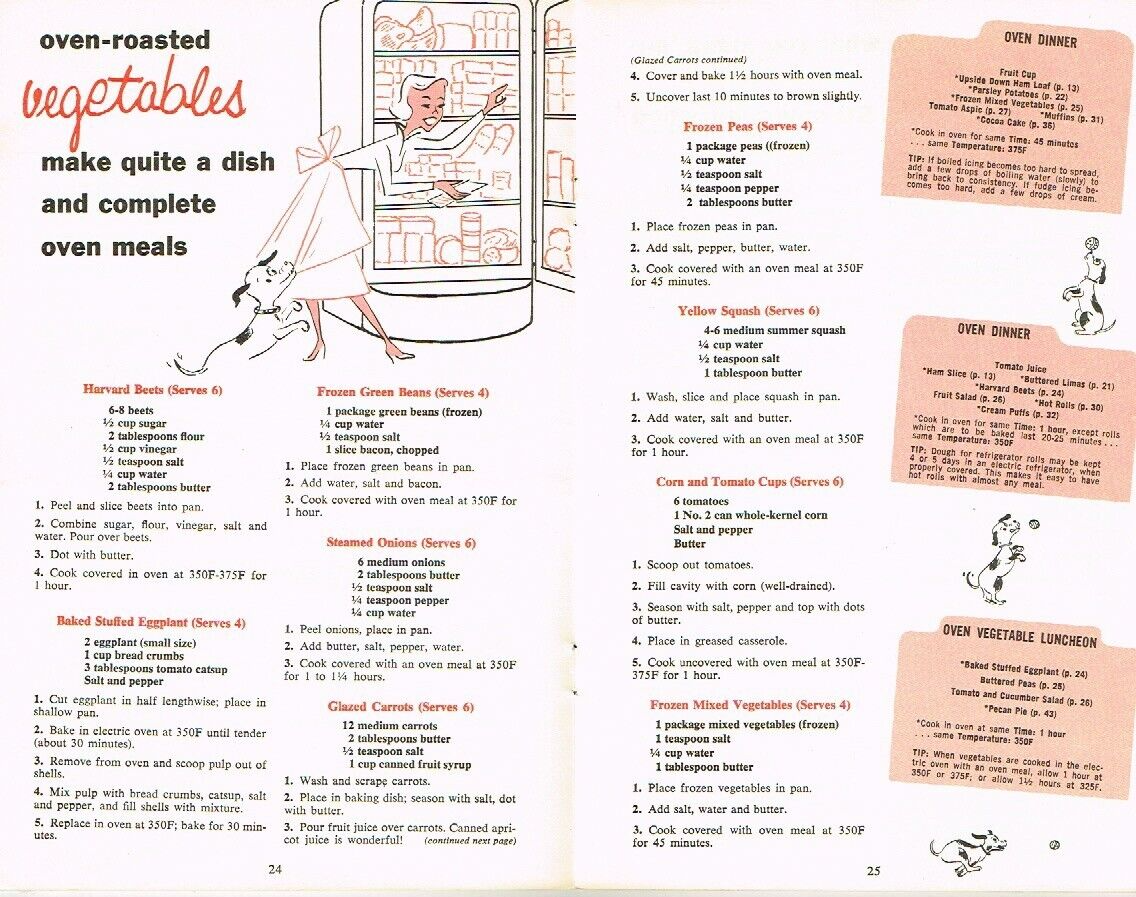 oven-roasted
vegetables
make quite a dish
and complete
oven meals
Harvard Beets (Serves 6)
6-8 beets
½ cup sugar
2 tablespoons flour
½ cup vinegar
½ teaspoon salt
¼ cup water
2 tablespoons butter
1. Peel and slice beets into pan.
2. Combine sugar, flour, vinegar, salt and
water. Pour over beets.
3. Dot with butter.
4. Cook covered in oven at 350F-375F for
1 hour.
Baked Stuffed Eggplant (Serves 4)
2 eggplant (small size)
1 cup bread crumbs
3 tablespoons tomato catsup
Salt and pepper
1. Cut eggplant in half lengthwise; place in
shallow pan.
2. Bake in electric oven at 350F until tender
(about 30 minutes).
3. Remove from oven and scoop pulp out of
shells.
4. Mix pulp with bread crumbs, catsup, salt
and pepper, and fill shells with mixture.
5. Replace in oven at 350F; bake for 30 min-
utes.
Frozen Green Beans (Serves 4)
1 package green beans (frozen)
¼ cup water
½ teaspoon salt
1 slice bacon, chopped
1. Place frozen green beans in pan.
2. Add water, salt and bacon.
3. Cook covered with oven meal at 350F for
1 hour.
Steamed Onions (Serves 6)
6 medium onions
2 tablespoons butter
½ teaspoon salt
¼ teaspoon pepper
¼ cup water
1. Peel onions, place in pan.
2. Add butter, salt, pepper, water.
3. Cook covered with an oven meal at 350F
for 1 to 1¼ hours.
Glazed Carrots (Serves 6)
12 medium carrots
2 tablespoons butter
½ teaspoon salt
1 cup canned fruit syrup
1. Wash and scrape carrots.
2. Place in baking dish; season with salt, dot
with butter.
3. Pour fruit juice over carrots. Canned apri-
cot juice is wonderful! (continued next page)
24
(Glazed Carrots continued)
4. Cover and bake 1½ hours with oven meal.
5. Uncover last 10 minutes to brown slightly.
Frozen Peas (Serves 4)
1 package peas ((frozen)
¼ cup water
½ teaspoon salt
¼ teaspoon pepper
2 tablespoons butter
1. Place frozen peas in pan.
2. Add salt, pepper, butter, water.
3. Cook covered with an oven meal at 350F
for 45 minutes.
Yellow Squash (Serves 6)
4-6 medium summer squash
¼ cup water
½ teaspoon salt
1 tablespoon butter
1. Wash, slice and place squash in pan.
2. Add water, salt and butter.
3. Cook covered with an oven meal at 350F
for 1 hour.
Corn and Tomato Cups (Serves 6)
6 tomatoes
1 No. 2 can whole-kernel corn
Salt and pepper
Butter
1. Scoop out tomatoes.
2. Fill cavity with corn (well-drained).
3. Season with salt, pepper and top with dots
of butter.
4. Place in greased casserole.
5. Cook uncovered with oven meal at 350F-
375F for 1 hour.
Frozen Mixed Vegetables (Serves 4)
1 package mixed vegetables (frozen)
1 teaspoon salt
¼ cup water
1 tablespoon butter
1. Place frozen vegetables in pan.
2. Add salt, water and butter.
3. Cook covered with oven meal at 350F
for 45 minutes.
OVEN DINNER
Fruit Cup
*Upside Down Ham Loaf (p. 13)
*Parsley Potatoes (p. 22)
*Frozen Mixed Vegetables (p. 25)
Tomato Aspic (p. 27) *Muffins (p. 31)
*Cocoa Cake (p. 36)
*Cook in oven for same Time: 45 minutes
... same Temperature: 375F
TIP: If boiled icing becomes too hard to spread,
add a few drops of boiling water (slowly) to
bring back to consistency. If fudge icing be-
comes too hard, add a few drops of cream.
OVEN DINNER
Tomato Juice
*Ham Slice (p. 13) *Buttered Limas (p. 21)
*Harvard Beets (p. 24)
Fruit Salad (p. 26) *Hot Rolls (p. 30)
*Cream Puffs (p. 32)
*Cook in oven for same Time: 1 hour, except rolls
which are to be baked last 20-25 minutes ...
same Temperature: 350F
TIP: Dough for refrigerator rolls may be kept
4 or 5 days in an electric refrigerator, when
properly covered. This makes it easy to have
hot rolls with almost any meal.
OVEN VEGETABLE LUNCHEON
*Baked Stuffed Eggplant (p. 24)
Buttered Peas (p. 25)
Tomato and Cucumber Salad (p. 26)
*Pecan Pie (p. 43)
*Cook in oven at same Time: 1 hour
... same Temperature: 350F
TIP: When vegetables are cooked in the elec-
tric oven with an oven meal, allow 1 hour at
350F or 375F; or allow 1½ hours at 325F.
25